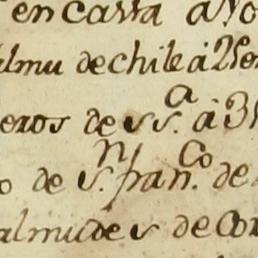 en carta a
almu de chile à 25
eros de s s.a à 3
o de S.n fran.co de
almudes de cor